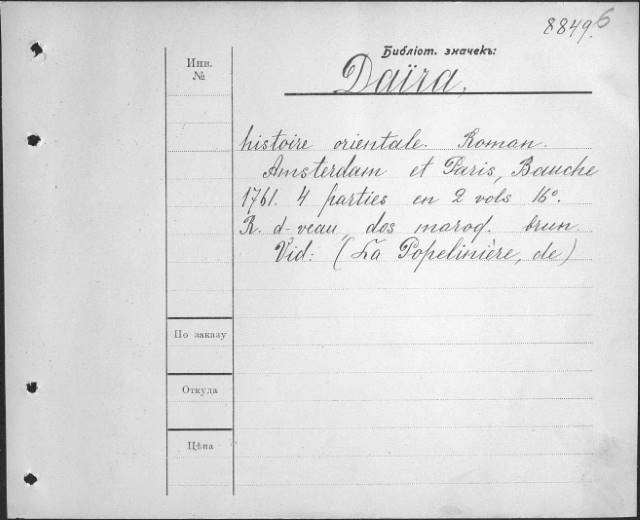 8849.6
Библіот. значекъ:
Инв.
№
Daïra,
histoire orientale. Roman.
Amsterdam et Paris, Bauche
1761. 4 parties en 2 vols 16°.
R. d-veau, dos maroq. brun.
Vid: (La Popelinière, de)
По заказу
Откуда
Цѣна